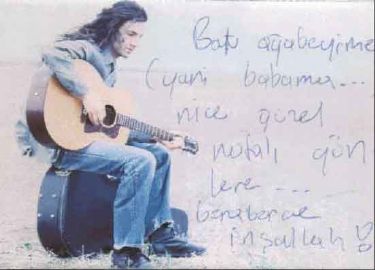 Batu ağabeyime
(yani babama...
nice güzel
notalı gün
lere ......
beraberce
inşallah